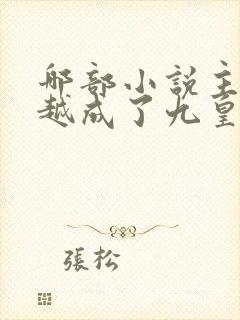 那部小說主
越成了九皇
張松